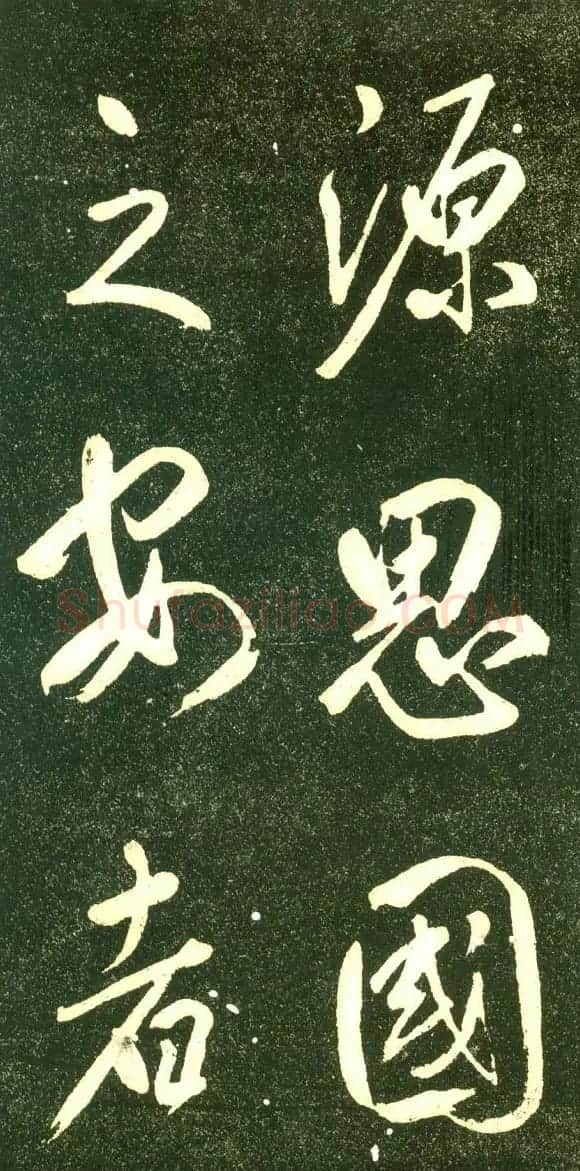 源思國
之安者
Shufaziliao.COM